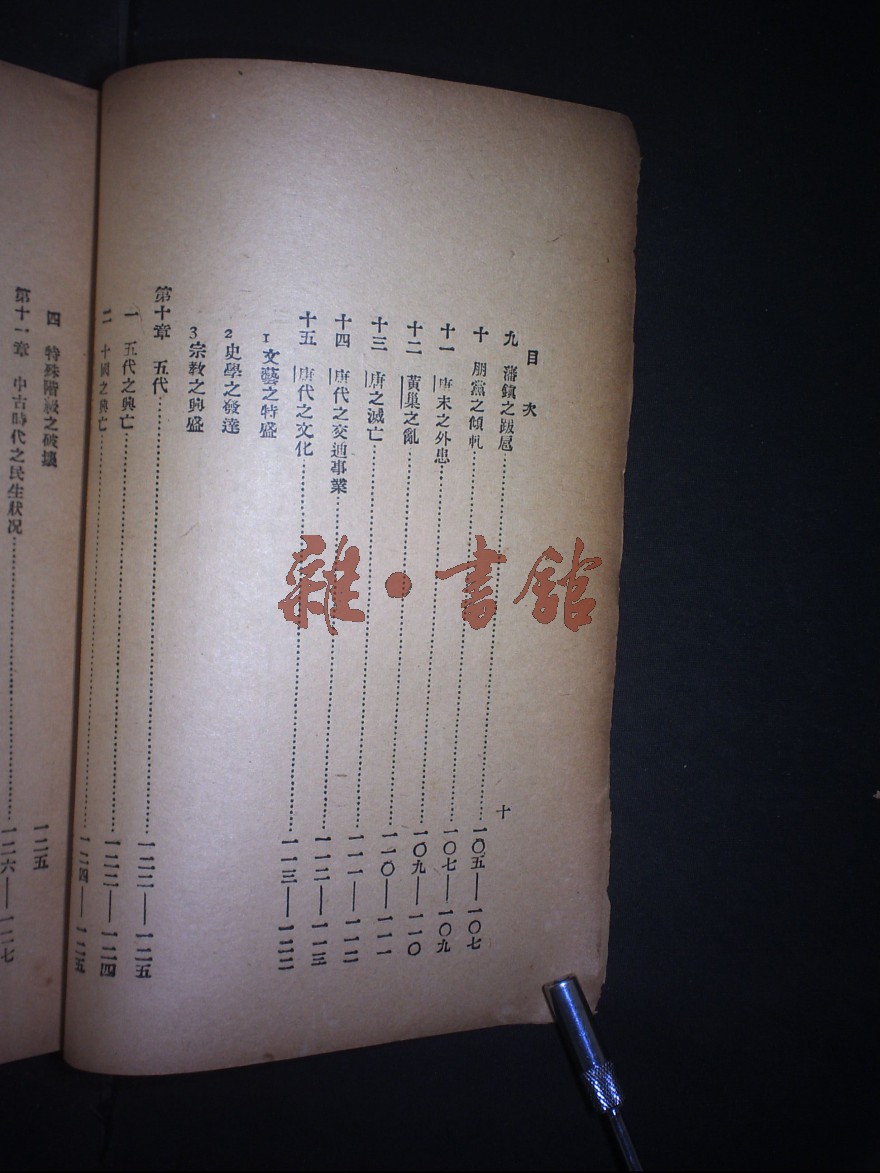 目次
十
九 藩鎮之跋扈……一〇五—一〇七
十 朋黨之傾軋……一〇七—一〇九
十一 唐末之外患……一〇九—一一〇
十二 黃巢之亂……一一〇—一一一
十三 唐之滅亡……一一一—一一二
十四 唐代之交通事業……一一二—一一三
十五 唐代之文化……一一三—一二二
1 文藝之特盛
2 史學之發達
3 宗教之興盛
第十章 五代……一二二—一二五
一 五代之興亡……一二二—一二四
二 十國之興亡……一二四—一二五
四 特殊階級之破壞 一二五
第十一章 中古時代之民生狀况……一二六—一二七
雜·書館